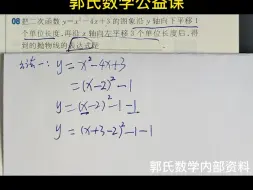 郭氏数学公益课
08 把二次函数 y=x²-4x+3 的图象沿 y 轴向下平移 1
个单位长度,再沿 x 轴向左平移 3 个单位长度后,得
到的抛物线的表达式是
法一: y = x²-4x+3
= (x-2)²-1
y = (x-2)²-1-1
y = (x+3-2)²-1-1
郭氏数学内部资料